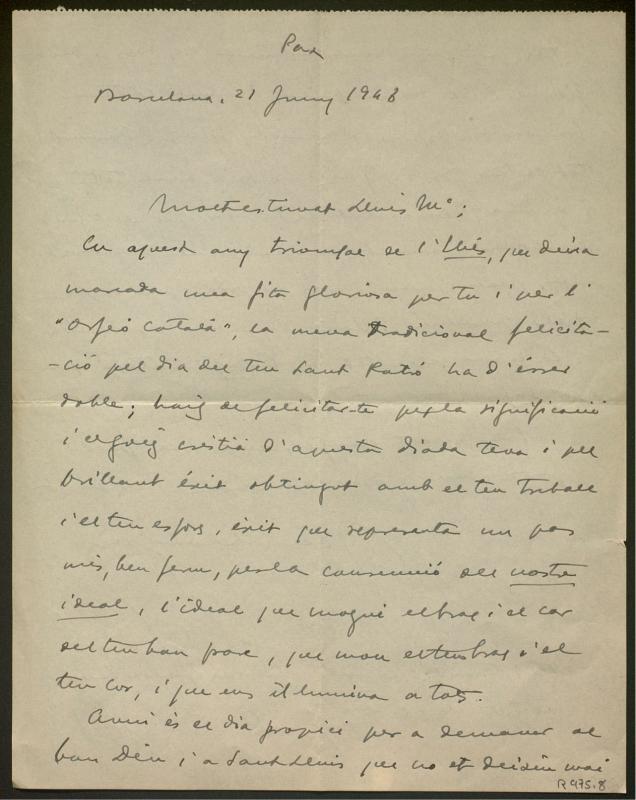 Pax
Barcelona, 21 Juny 1948
Molt estimat Lluis Mª;
En aquest any triomfal de l', que deixa
marcada una fita gloriosa per tu i per l'
"Orfeó Català", la meva tradicional felicita-
-ció pel dia del teu Sant Patró ha d'ésser
doble; haig de felicitar-te per la significació
i el goig cristià d'aquesta diada teva i pel
brillant éxit obtingut amb el teu treball
i el teu esforç, éxit que representa un pas
més, ben ferm, per la consecució del nostre
ideal, l'ideal que mogué el braç i el cor
del teu bon pare, que mou el teu braç i el
teu cor, i que ens il·lumina a tots.
Avui és el dia propici per a demanar al
bon Déu i a Sant Lluis que no et deixin mai
R 975.8